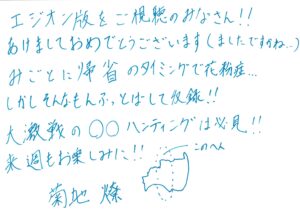 エジオン版をご視聴のみなさん!!
あけましておめでとうございます(ましたですかね…)
みごとに帰省のタイミングで花粉症…
しかしそんなもんふっとばして収録!!
大激戦の○○ハンティングは必見!!
来週もお楽しみに!!
このへん
菊地 燎